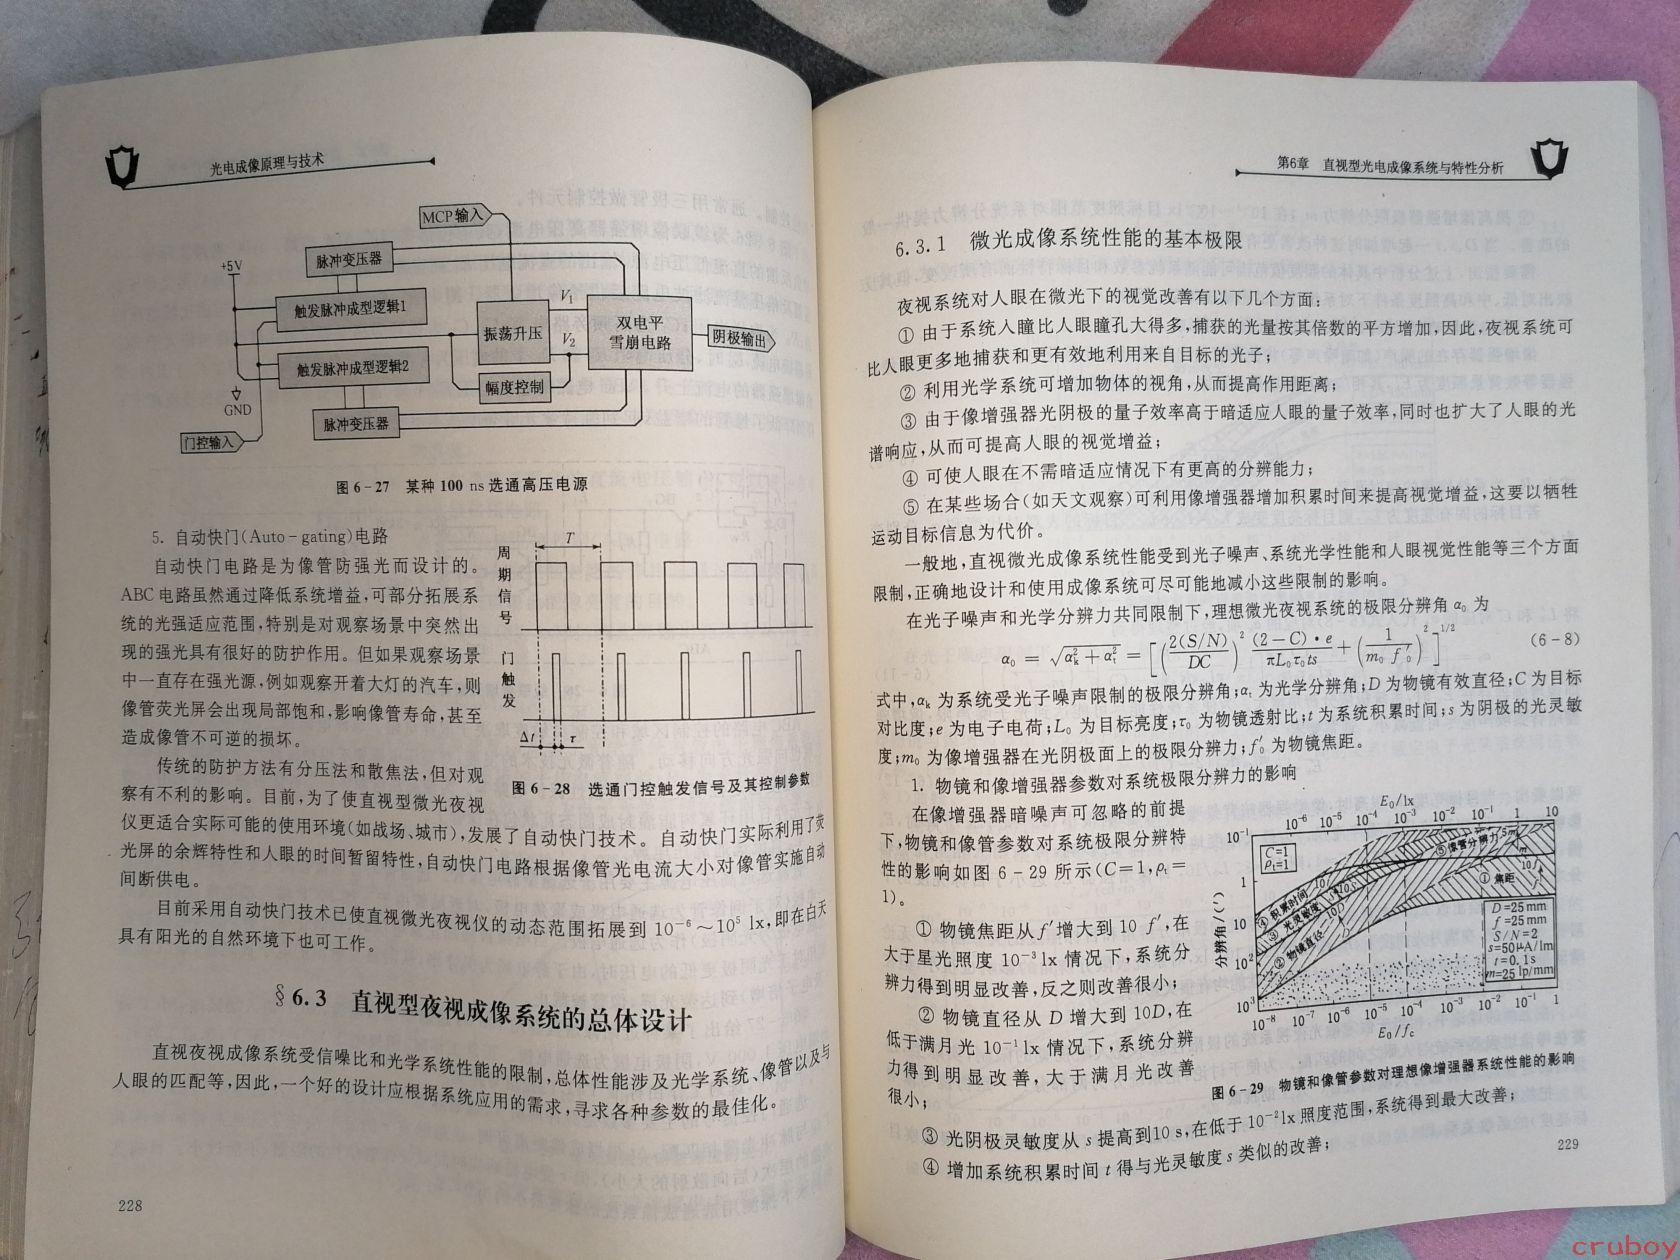 光电成像原理与技术
MCP输入
+5V
脉冲变压器
触发脉冲成型逻辑1
振荡升压
V₁
V₂
双电平
雪崩电路
阴极输出
触发脉冲成型逻辑2
幅度控制
GND
脉冲变压器
门控输入
图6-27 某种100 ns选通高压电源
5. 自动快门(Auto-gating)电路
自动快门电路是为像管防强光而设计的。
ABC电路虽然通过降低系统增益,可部分拓展系
统的光强适应范围,特别是对观察场景中突然出
现的强光具有很好的防护作用。但如果观察场景
中一直存在强光源,例如观察开着大灯的汽车,则
像管荧光屏会出现局部饱和,影响像管寿命,甚至
造成像管不可逆的损坏。
周期信号
T
门触发
Δt
τ
图6-28 选通门控触发信号及其控制参数
传统的防护方法有分压法和散焦法,但对观
察有不利的影响。目前,为了使直视型微光夜视
仪更适合实际可能的使用环境(如战场、城市),发展了自动快门技术。自动快门实际利用了荧
光屏的余辉特性和人眼的时间暂留特性,自动快门电路根据像管光电流大小对像管实施自动
间断供电。
目前采用自动快门技术已使直视微光夜视仪的动态范围拓展到10⁻⁶～10⁵ lx,即在白天
具有阳光的自然环境下也可工作。
§6.3 直视型夜视成像系统的总体设计
直视夜视成像系统受信噪比和光学系统性能的限制,总体性能涉及光学系统、像管以及与
人眼的匹配等,因此,一个好的设计应根据系统应用的需求,寻求各种参数的最佳化。
228
第6章 直视型光电成像系统与特性分析
6.3.1 微光成像系统性能的基本极限
夜视系统对人眼在微光下的视觉改善有以下几个方面:
① 由于系统入瞳比人眼瞳孔大得多,捕获的光量按其倍数的平方增加,因此,夜视系统可
比人眼更多地捕获和更有效地利用来自目标的光子;
② 利用光学系统可增加物体的视角,从而提高作用距离;
③ 由于像增强器光阴极的量子效率高于暗适应人眼的量子效率,同时也扩大了人眼的光
谱响应,从而可提高人眼的视觉增益;
④ 可使人眼在不需暗适应情况下有更高的分辨能力;
⑤ 在某些场合(如天文观察)可利用像增强器增加积累时间来提高视觉增益,这要以牺牲
运动目标信息为代价。
一般地,直视微光成像系统性能受到光子噪声、系统光学性能和人眼视觉性能等三个方面
限制,正确地设计和使用成像系统可尽可能地减小这些限制的影响。
在光子噪声和光学分辨力共同限制下,理想微光夜视系统的极限分辨角α₀为
α₀ = √(αₖ²+αₜ²) = [(2(S/N)/DC)² (2-C)·e/πL₀τ₀ts + (1/m₀f′₀)²]^(1/2) (6-8)
式中,αₖ为系统受光子噪声限制的极限分辨角;αₜ为光学分辨角;D为物镜有效直径;C为目标
对比度;e为电子电荷;L₀为目标亮度;τ₀为物镜透射比;t为系统积累时间;s为阴极的光灵敏
度;m₀为像增强器在光阴极面上的极限分辨力;f′₀为物镜焦距。
1. 物镜和像增强器参数对系统极限分辨力的影响
在像增强器暗噪声可忽略的前提
下,物镜和像管参数对系统极限分辨特
性的影响如图6-29所示(C=1,ρₜ=
1)。
① 物镜焦距从f′增大到10 f′,在
大于星光照度10⁻³lx情况下,系统分
辨力得到明显改善,反之则改善很小;
② 物镜直径从D增大到10D,在
低于满月光10⁻¹lx情况下,系统分辨
力得到明显改善,大于满月光改善
很小;
E₀/lx
10⁻⁶ 10⁻⁵ 10⁻⁴ 10⁻³ 10⁻² 10⁻¹ 1 10
10⁻¹
1
10
10²
10³
分辨角/(′)
C=1
ρₜ=1
⑤像管分辨力
①焦距
④积累时间
③光灵敏度
②物镜直径
D=25 mm
f=25 mm
S/N=2
s=50μA/lm
t=0.1s
m=25 lp/mm
10⁻⁸ 10⁻⁷ 10⁻⁶ 10⁻⁵ 10⁻⁴ 10⁻³ 10⁻² 10⁻¹ 1
E₀/fc
图6-29 物镜和像管参数对理想像增强器系统性能的影响
③ 光阴极灵敏度从s提高到10 s,在低于10⁻²lx照度范围,系统得到最大改善;
④ 增加系统积累时间t得与光灵敏度s类似的改善;
229
cruboy